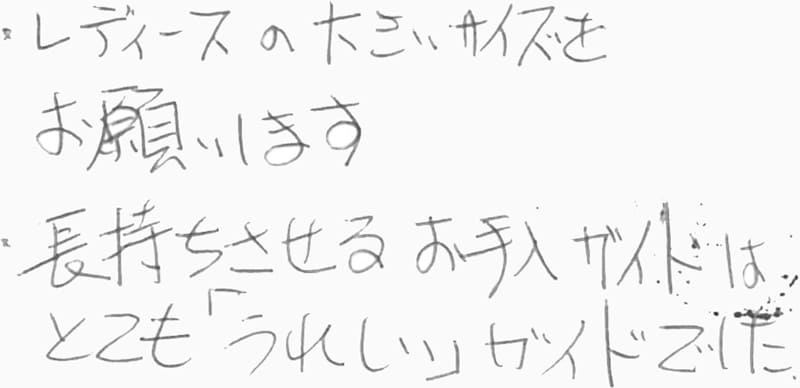 ・レディースの大きいサイズを
お願いします
・長持ちさせるお手入ガイドは
とても「うれしい」ガイドでした.